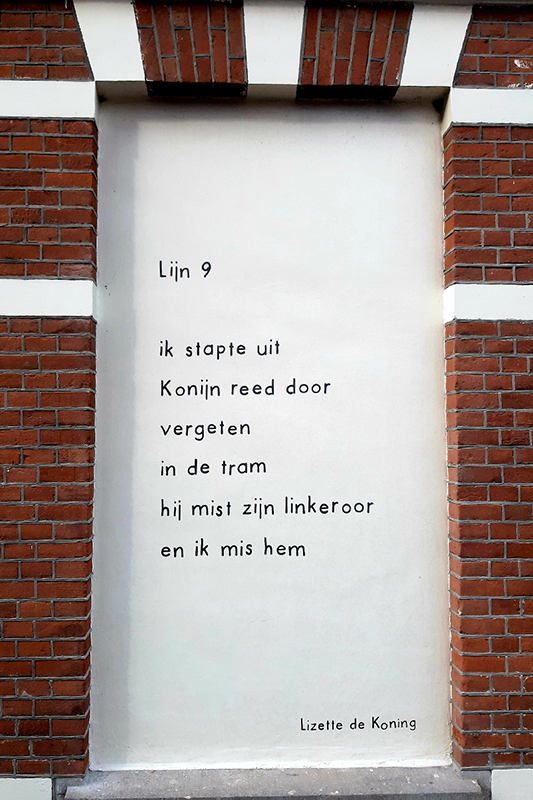 Lijn 9
ik stapte uit
Konijn reed door
vergeten
in de tram
hij mist zijn linkeroor
en ik mis hem
Lizette de Koning